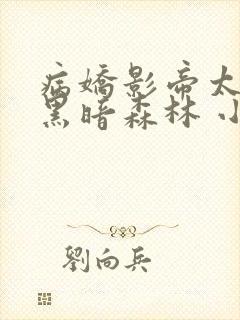 病嬌影帝太
黑暗森林 小
劉向兵